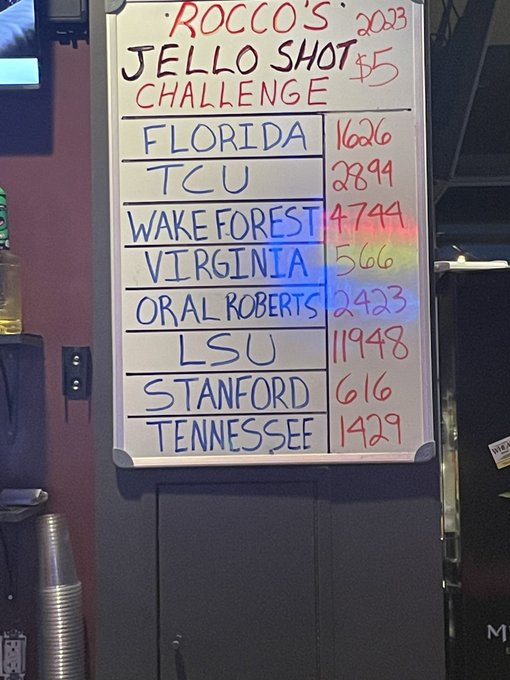 ROCCO'S 2023
JELLO SHOT $5
CHALLENGE
FLORIDA 1626
TCU 2894
WAKE FOREST 4744
VIRGINIA 566
ORAL ROBERTS 2423
LSU 11948
STANFORD 616
TENNESSEE 1429